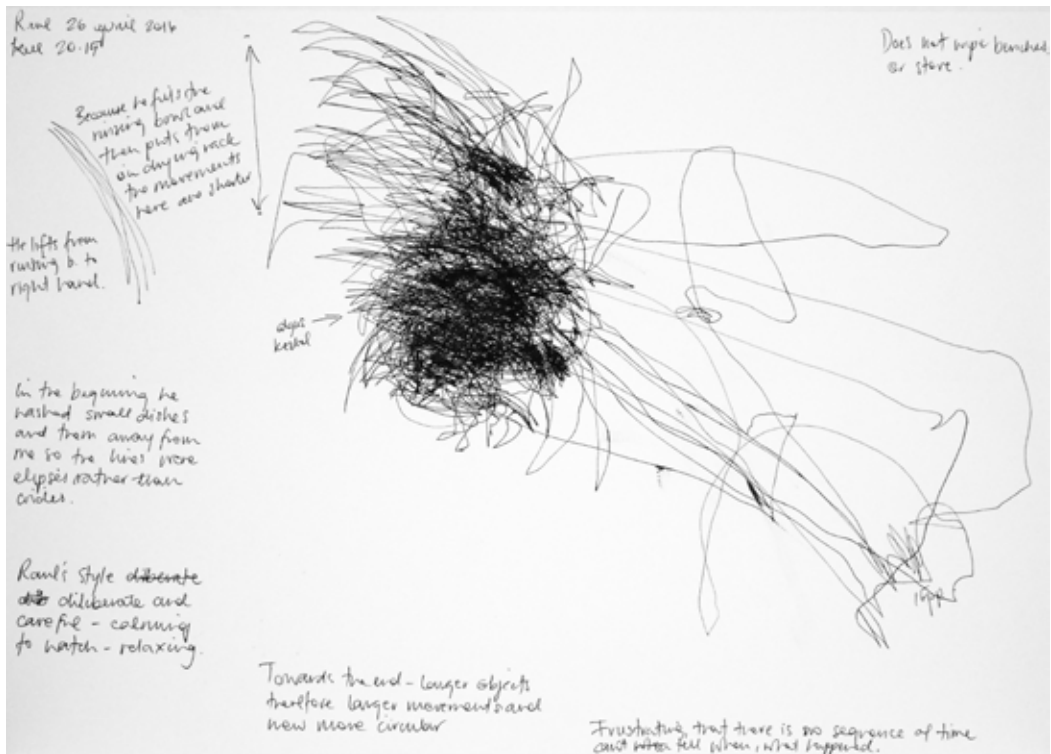 Raul 26 avril 2016
20.15
Does not wipe benches
or stove.
Because he fills the
rinsing bowl and
then puts them
on drying rack
the movements
here are shorter
He lifts from
rinsing b. to
right hand.
In the beginning he
washed small dishes
and them away from
me so the lines were
elipses rather than
circles.
Raul's style diliberate and
careful - calming
to watch - relaxing.
Towards the end - larger objects
therefore larger movements and
now more circular
tap
Frustrating that there is no sequence of time
can't tell when, what happened.